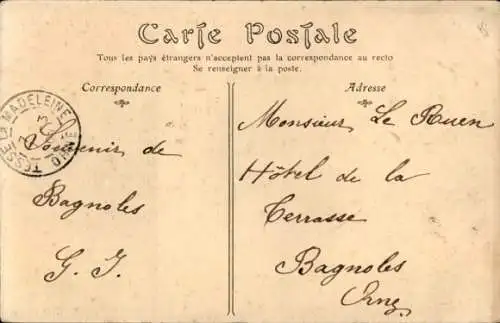 Carte Postale
Tous les pays étrangers n'acceptent pas la correspondance au recto
Se renseigner à la poste.
Correspondance
Adresse
TESSÉ LA MADELEINE
ORNE
Souvenir de
Bagnoles
G. J.
Monsieur Le Ruen
Hôtel de la
Terrasse
Bagnoles
Orne